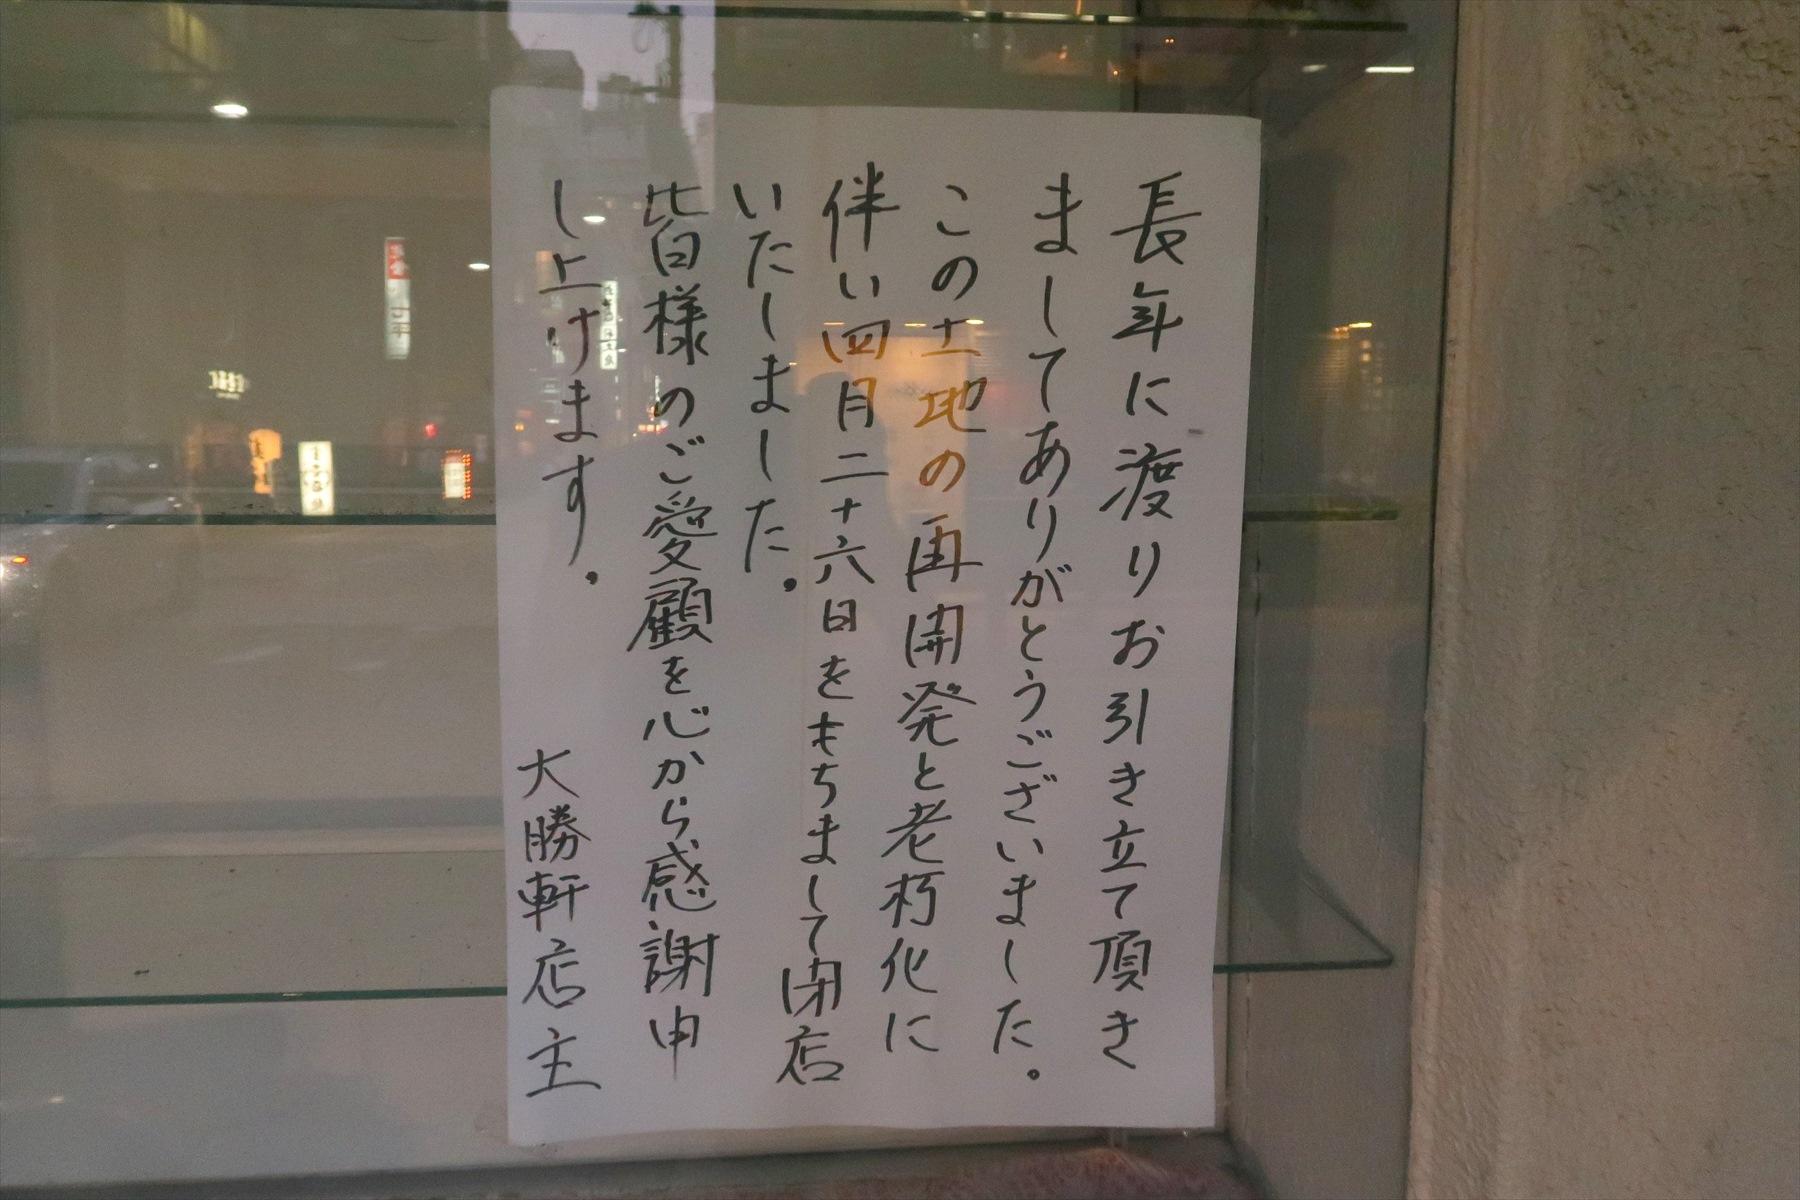 長年に渡りお引き立て頂き
ましてありがとうございました。
この土地の再開発と老朽化に
伴い四月二十六日をもちまして閉店
いたしました。
皆様のご愛顧を心から感謝申
し上げます。
大勝軒店主